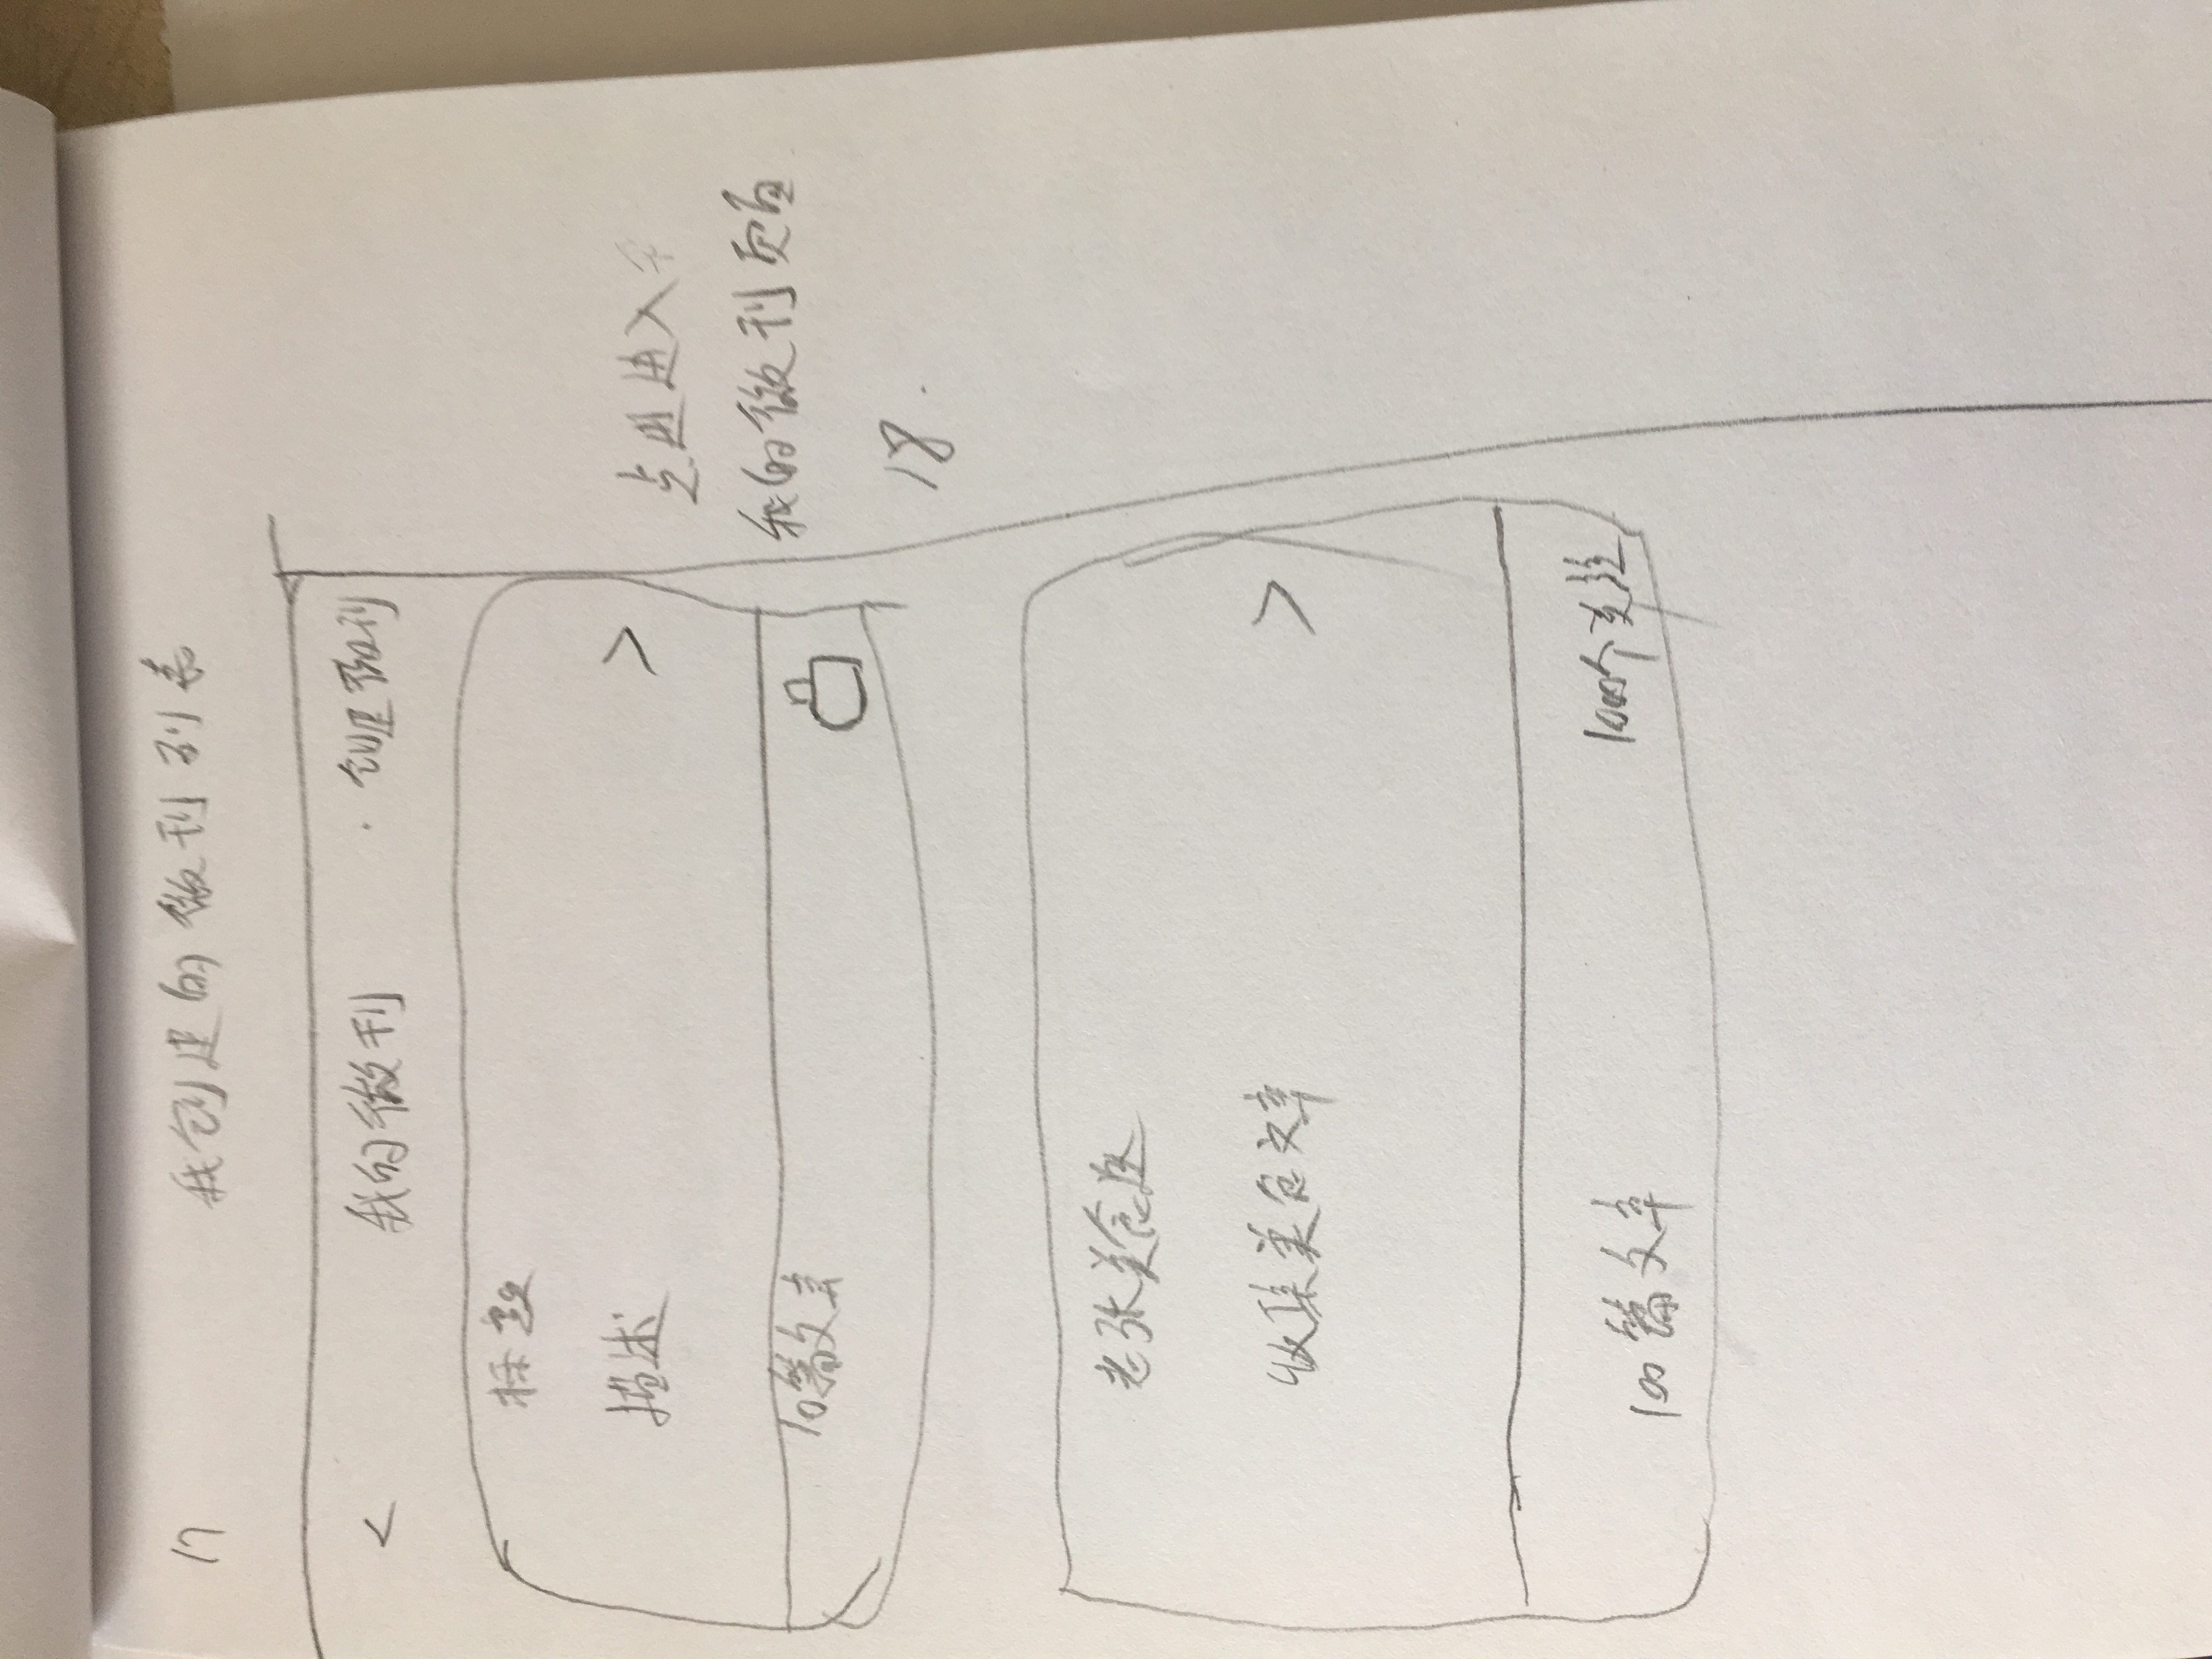 17 我创建的微刊列表
< 我的微刊 · 创建微刊
标题
描述 >
10篇文章
点进进入
我的微刊页面
18.
老张美食
收集美食文章 >
100篇文章 1000个